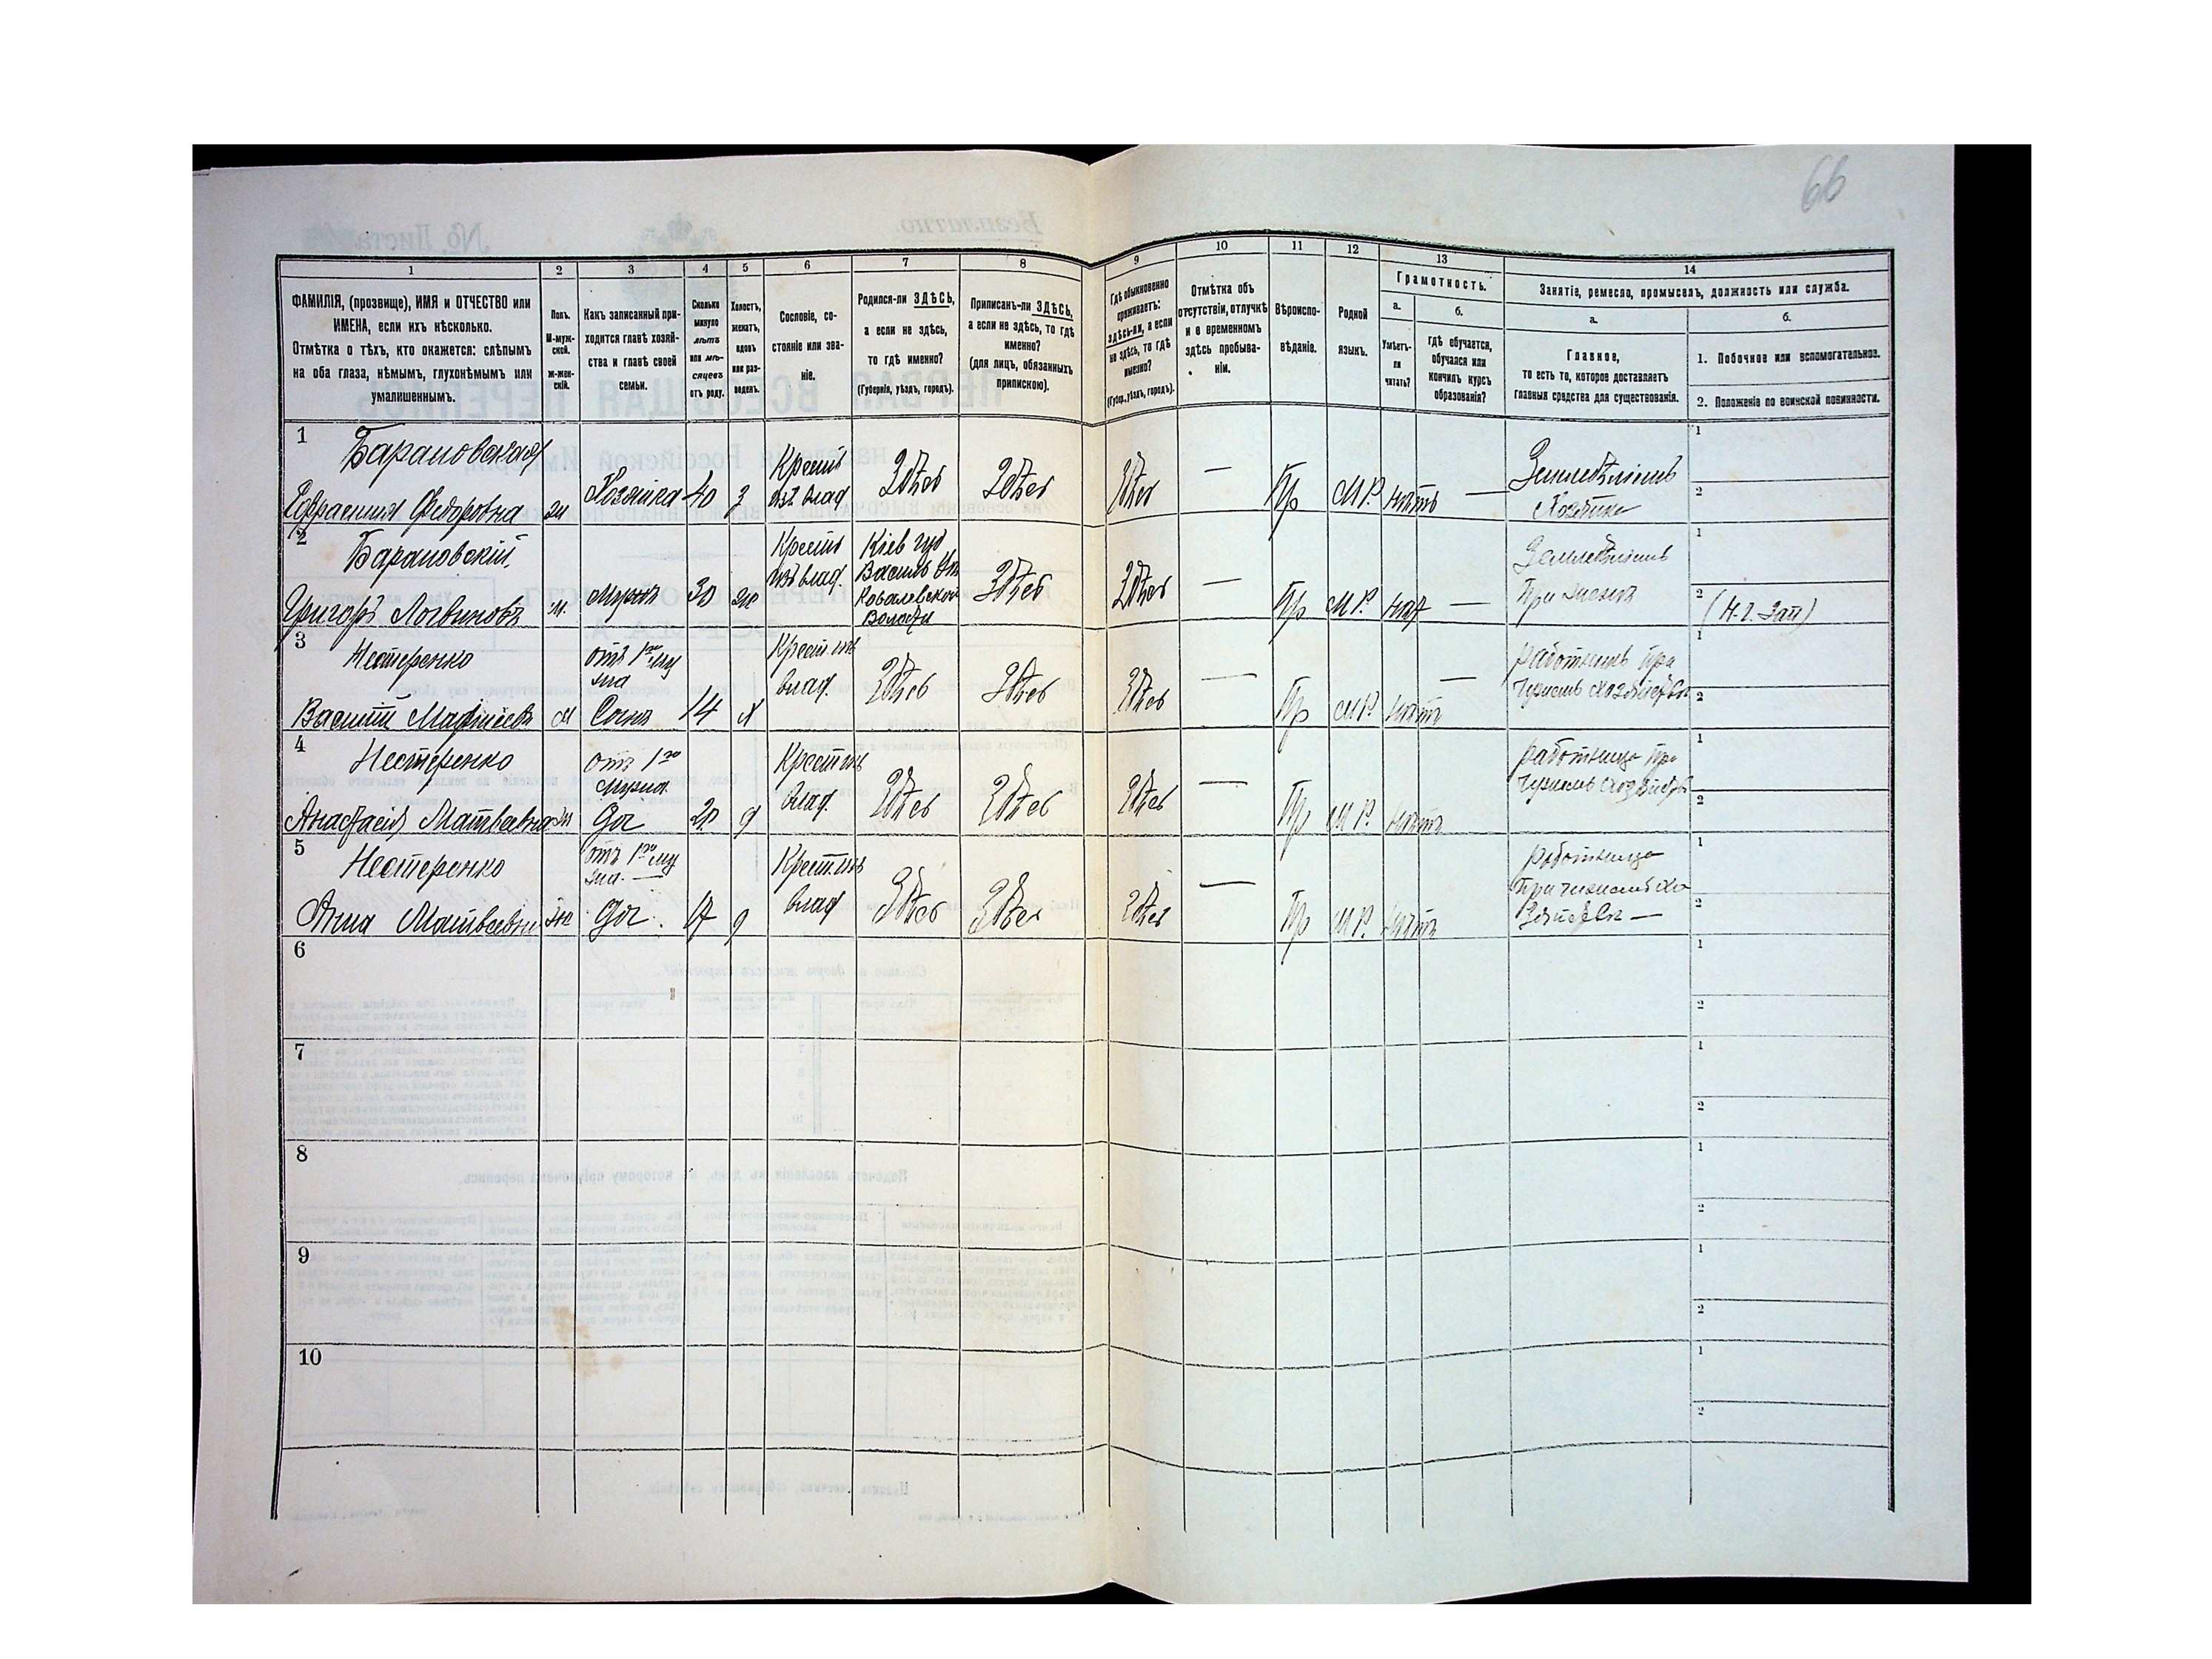 66
1 2 3 4 5 6 7 8 9 10 11 12 13 14
ФАМИЛІЯ, (прозвище), ИМЯ и ОТЧЕСТВО или
ИМЕНА, если ихъ нѣсколько.
Отмѣтка о тѣхъ, кто окажется: слѣпымъ
на оба глаза, нѣмымъ, глухонѣмымъ или
умалишеннымъ.
Полъ.
М-муж-
ской.
ж-жен-
скій.
Какъ записанный при-
ходится главѣ хозяй-
ства и главѣ своей
семьи.
Сколько
минуло
лѣтъ
или мѣ-
сяцевъ
отъ роду.
Холостъ,
женатъ,
вдовъ
или раз-
веденъ.
Сословіе, со-
стояніе или зва-
ніе.
Родился-ли ЗДѢСЬ,
а если не здѣсь,
то гдѣ именно?
(Губернія, уѣздъ, городъ).
Приписанъ-ли ЗДѢСЬ,
а если не здѣсь, то гдѣ
именно?
(для лицъ, обязанныхъ
припискою).
Гдѣ обыкновенно
проживаетъ:
здѣсь-ли, а если
не здѣсь, то гдѣ
именно?
(Губер., уѣздъ, городъ).
Отмѣтка объ
отсутствіи, отлучкѣ
и о временномъ
здѣсь пребыва-
ніи.
Вѣроиспо-
вѣданіе.
Родной
языкъ.
Грамотность.
а.
Умѣетъ-
ли
читать?
б.
гдѣ обучается,
обучался или
кончилъ курсъ
образованія?
Занятіе, ремесло, промыселъ, должность или служба.
а.
Главное,
то есть то, которое доставляетъ
главныя средства для существованія.
б.
1. Побочное или вспомогательное.
2. Положеніе по воинской повинности.
1
Барановская
Ефрасинія Федоровна
Хозяйка
40
Крест
изъ влад
Здѣсь
Здѣсь
Здѣсь
—
Пр
М.Р.
нѣтъ
—
Земледѣліемъ
Хозяйка
1
2
2
Барановскій
Григорій Логвиновъ
м
мужъ
30
ж
Крест
изъ влад.
Кіев губ
Васильк
Ковалевской
Волости
Здѣсь
Здѣсь
—
Пр
М.Р.
нѣт
—
Земледѣліемъ
При женѣ
1
2
3
Нестеренко
Василій Матвѣевъ
м
отъ 1го му
жа
Сынъ
14
х
Крест. изъ
влад.
Здѣсь
Здѣсь
Здѣсь
—
Пр
М.Р.
нѣтъ
—
работникъ при
1
2
4
Нестеренко
Анастасія Матвѣевна
отъ 1го
мужа
Доч
20
д
Крест изъ
влад.
Здѣсь
Здѣсь
Здѣсь
—
Пр
М.Р.
нѣтъ
работница при
1
2
5
Нестеренко
Анна Матвѣевна
отъ 1го му
жа. —
Доч.
17
д
Крест. изъ
влад
Здѣсь
Здѣсь
Здѣсь
—
Пр
М.Р.
нѣтъ
работница
1
2
6
1
2
7
1
2
8
1
2
9
1
2
10
1
2